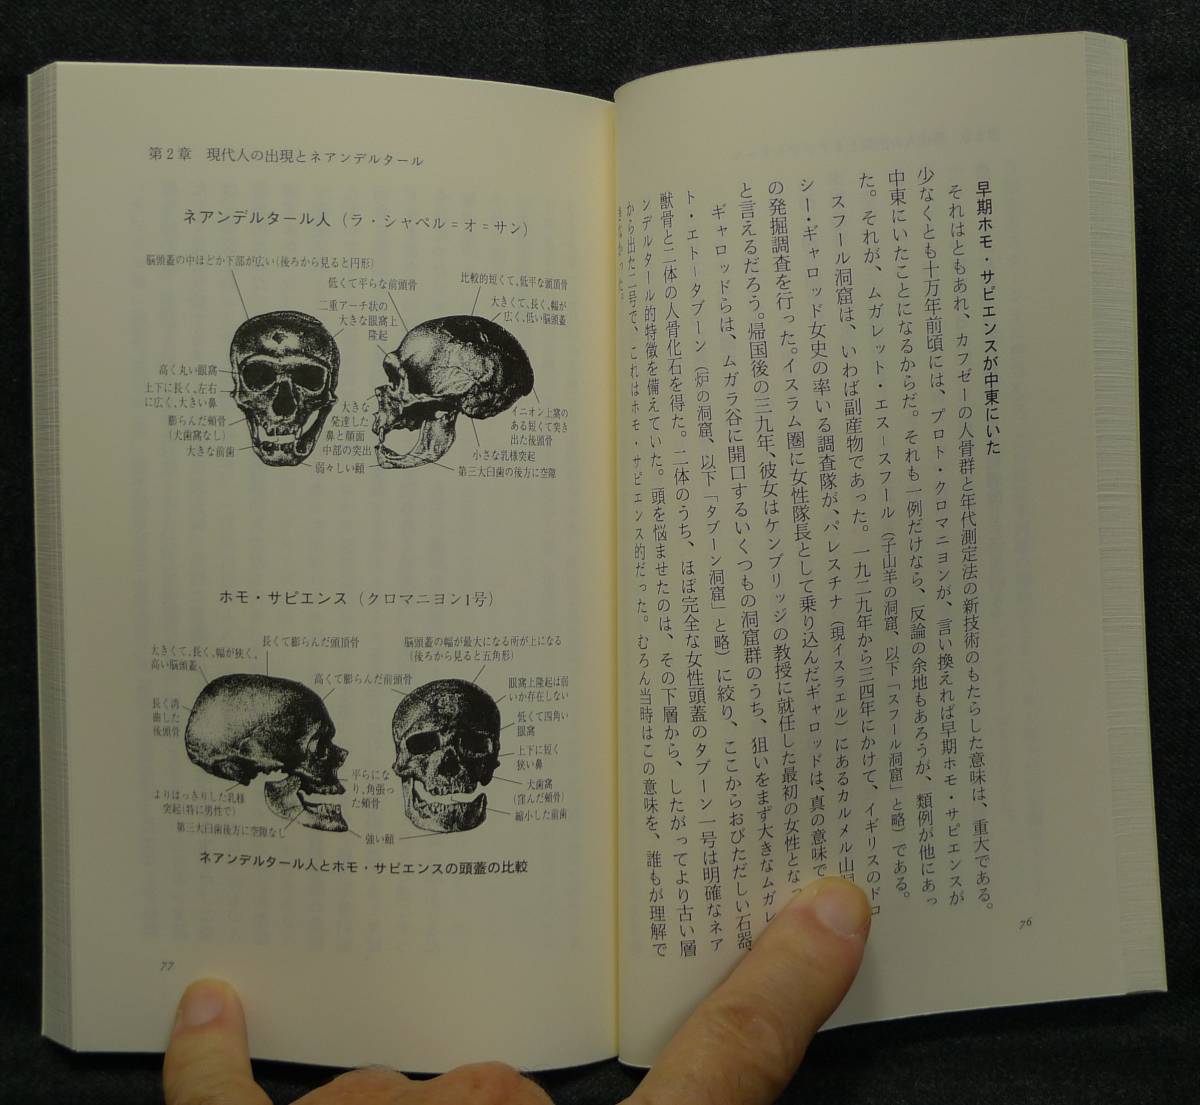 早期ホモ・サピエンスが中東にいた
それはともあれ、カフゼーの人骨群と年代測定法の新技術のもたらした意味は、重大である。
少なくとも十万年前頃には、プロト・クロマニヨンが、言い換えれば早期ホモ・サピエンスが
中東にいたことになるからだ。それも一例だけなら、反論の余地もあろうが、類例が他にあっ
た。それが、ムガレット・エス＝スフール（子山羊の洞窟、以下「スフール洞窟」と略）である。
スフール洞窟は、いわば副産物であった。一九二九年から三四年にかけて、イギリスのドロ
シー・ギャロッド女史の率いる調査隊が、パレスチナ（現イスラエル）にあるカルメル山
の発掘調査を行った。イスラム圏に女性隊長として乗り込んだギャロッドは、真の意味で
と言えるだろう。帰国後の三九年、彼女はケンブリッジの教授に就任した最初の女性となっ
ギャロッドらは、ムガラ谷に開口するいくつもの洞窟群のうち、狙いをまず大きなムガレ
ト・エト＝タブーン（炉の洞窟、以下「タブーン洞窟」と略）に絞り、ここからおびただしい石器、
獣骨と二体の人骨化石を得た。二体のうち、ほぼ完全な女性頭蓋のタブーン一号は明確なネア
ンデルタール的特徴を備えていた。頭を悩ませたのは、その下層から、したがってより古い層
から出た二号で、これはホモ・サピエンス的だった。むろん当時はこの意味を、誰もが理解で
きなかった。
76
第2章 現代人の出現とネアンデルタール
ネアンデルタール人（ラ・シャペル＝オ＝サン）
脳頭蓋の中ほどか下部が広い（後ろから見ると円形）
低くて平らな前頭骨
二重アーチ状の
大きな眼窩上
隆起
比較的短くて、低平な頭頂骨
大きくて、長く、幅が
広く、低い脳頭蓋
高く丸い眼窩
上下に長く、左右
に広く、大きい鼻
膨らんだ頬骨
（犬歯窩なし）
大きな前歯
大きな
発達した
鼻と顔面
中部の突出
弱々しい頤
イニオン上窩の
ある短くて突き
出た後頭骨
小さな乳様突起
第三大臼歯の後方に空隙
ホモ・サピエンス（クロマニヨン1号）
大きくて、長く、幅が狭く、
高い脳頭蓋
長くて膨らんだ頭頂骨
脳頭蓋の幅が最大になる所が上になる
（後ろから見ると五角形）
高くて膨らんだ前頭骨
眼窩上隆起は弱
いか存在しない
長く湾
曲した
後頭骨
低くて四角い
眼窩
上下に短く
狭い鼻
平らにな
り、角張っ
た頬骨
犬歯窩
（窪んだ頬骨）
縮小した前歯
よりはっきりした乳様
突起（特に男性で）
第三大臼歯後方に空隙なし
強い頤
ネアンデルタール人とホモ・サピエンスの頭蓋の比較
77